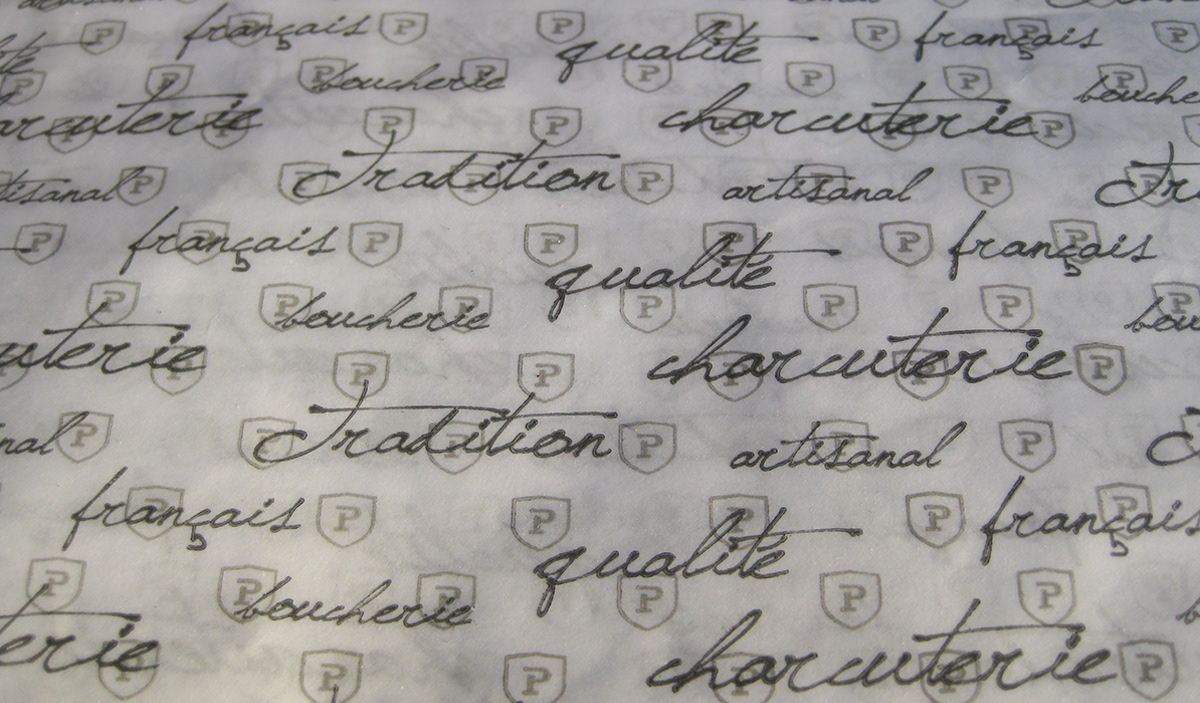 artisanal
français P P qualité P français P
qualité P P boucherie P P P boucherie
charcuterie P P charcuterie P
artisanal P Tradition P artisanal P Tr
P français P P qualité P français
P boucherie P P P P bou
uterie P P charcuterie P
nal P Tradition P artisanal P
français P P qualité P français
P boucherie P P P P
terie P P charcuterie P